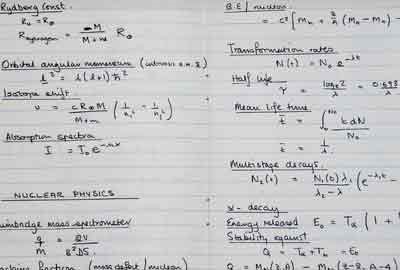 Rydberg Const.
R₀ = R∞
R_Hydrogen = M / (M + m) R∞
Orbital angular momentum
l² = l(l+1) ħ²
Isotope shift.
ν = c R∞ M / (M + m) (1/n₁² - 1/n₂²)
Absorption spectra
I = I₀ e
NUCLEAR PHYSICS
mass spectrometer
q/m =
(mass defect / nucleon)
B.E / nucleon
= c² [ M
Transformation rates
N(t) = N₀ e^-λt
Half life
τ = log_e 2 / λ = 0.693
Mean life time
t̄ = ∫ t dN / N₀
t̄ = 1/λ
Multistage decays.
N₂(t) = N₁(0) λ₁ / (λ₂ - λ) (e^-λ₁t -
α - decay
Energy released E₀ = Tα (1 +
Stability against
Q = Tα + T = E₀
Q = M (Z, A) - M (Z-2, A-4)